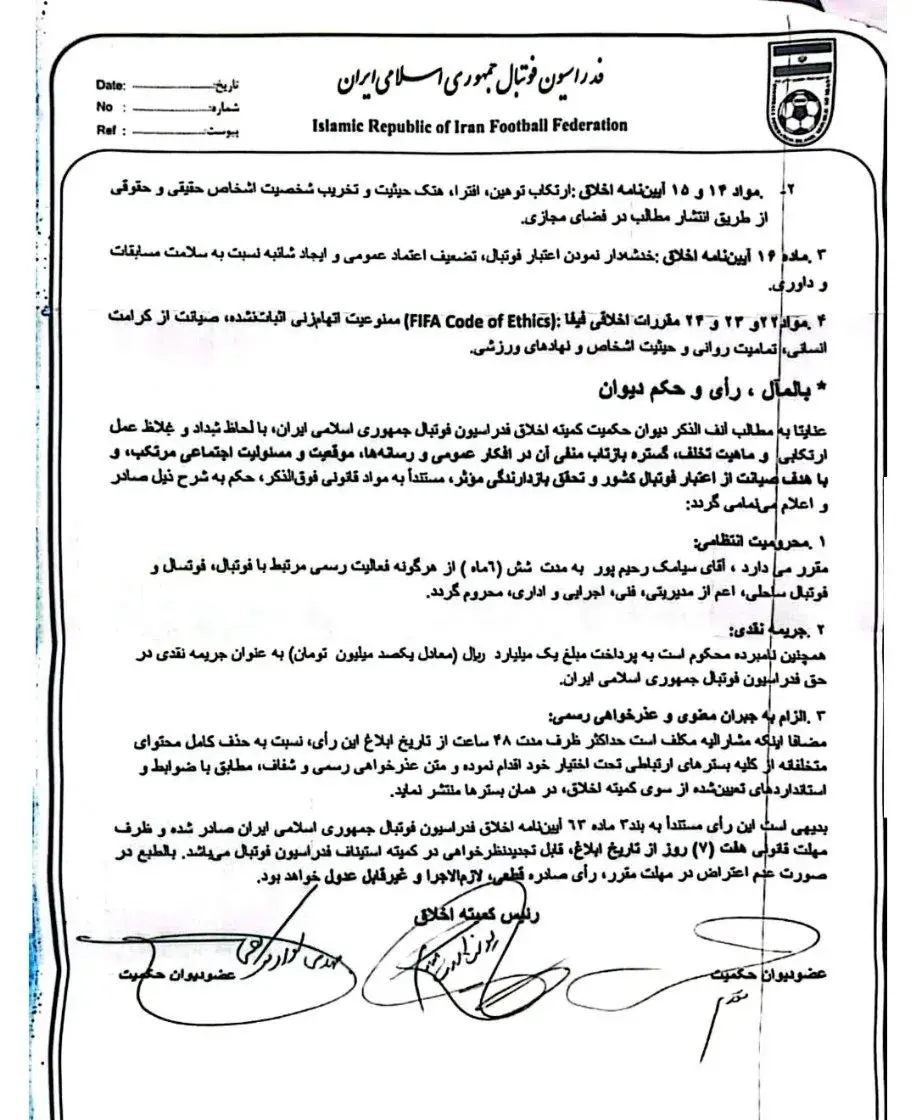 فدراسیون فوتبال جمهوری اسلامی ایران
Islamic Republic of Iran Football Federation
Date: تاریخ:
No : شماره:
Ref : پیوست:
۲- .مواد ۱۴ و ۱۵ آیین‌نامه اخلاق :ارتکاب توهین، افترا، هتک حیثیت و تخریب شخصیت اشخاص حقیقی و حقوقی
از طریق انتشار مطالب در فضای مجازی.
۳ .ماده ۱۶ آیین‌نامه اخلاق :خدشه‌دار نمودن اعتبار فوتبال، تضعیف اعتماد عمومی و ایجاد شائبه نسبت به سلامت مسابقات
و داوری.
۴ .مواد۲۲و ۲۳ و ۲۴ مقررات اخلاقی فیفا :(FIFA Code of Ethics) ممنوعیت اتهام‌زنی اثبات‌نشده، صیانت از کرامت
انسانی، تمامیت روانی و حیثیت اشخاص و نهادهای ورزشی.
* بالمآل ، رأی و حکم دیوان
عنایتا به مطالب آنف الذکر دیوان حکمیت کمیته اخلاق فدراسیون فوتبال جمهوری اسلامی ایران، با لحاظ شداد و غلاظ عمل
ارتکابی و ماهیت تخلف، گستره بازتاب منفی آن در افکار عمومی و رسانه‌ها، موقعیت و مسئولیت اجتماعی مرتکب، و
با هدف صیانت از اعتبار فوتبال کشور و تحقق بازدارندگی مؤثر، مستنداً به مواد قانونی فوق‌الذکر، حکم به شرح ذیل صادر
و اعلام می‌نمامی گردد:
۱ .محرومیت انتظامی:
مقرر می دارد ، آقای سیامک رحیم پور به مدت شش (۶ماه ) از هرگونه فعالیت رسمی مرتبط با فوتبال، فوتسال و
فوتبال ساحلی، اعم از مدیریتی، فنی، اجرایی و اداری، محروم گردد.
۲ .جریمه نقدی:
همچنین نامبرده محکوم است به پرداخت مبلغ یک میلیارد ریال (معادل یکصد میلیون تومان) به عنوان جریمه نقدی در
حق فدراسیون فوتبال جمهوری اسلامی ایران.
۳ .الزام به جبران معنوی و عذرخواهی رسمی:
مضافا اینکه مشارالیه مکلف است حداکثر ظرف مدت ۴۸ ساعت از تاریخ ابلاغ این رأی، نسبت به حذف کامل محتوای
متخلفانه از کلیه بسترهای ارتباطی تحت اختیار خود اقدام نموده و متن عذرخواهی رسمی و شفاف، مطابق با ضوابط و
استانداردهای تعیین‌شده از سوی کمیته اخلاق، در همان بسترها منتشر نماید.
بدیهی است این رأی مستنداً به بند۳ ماده ۶۳ آیین‌نامه اخلاق فدراسیون فوتبال جمهوری اسلامی ایران صادر شده و ظرف
مهلت قانونی هفت (۷) روز از تاریخ ابلاغ، قابل تجدیدنظرخواهی در کمیته استیناف فدراسیون فوتبال می‌باشد. بالطبع در
صورت عدم اعتراض در مهلت مقرر، رأی صادره قطعی، لازم‌الاجرا و غیرقابل عدول خواهد بود.
رئیس کمیته اخلاق
عضودیوان حکمیت
عضودیوان حکمیت